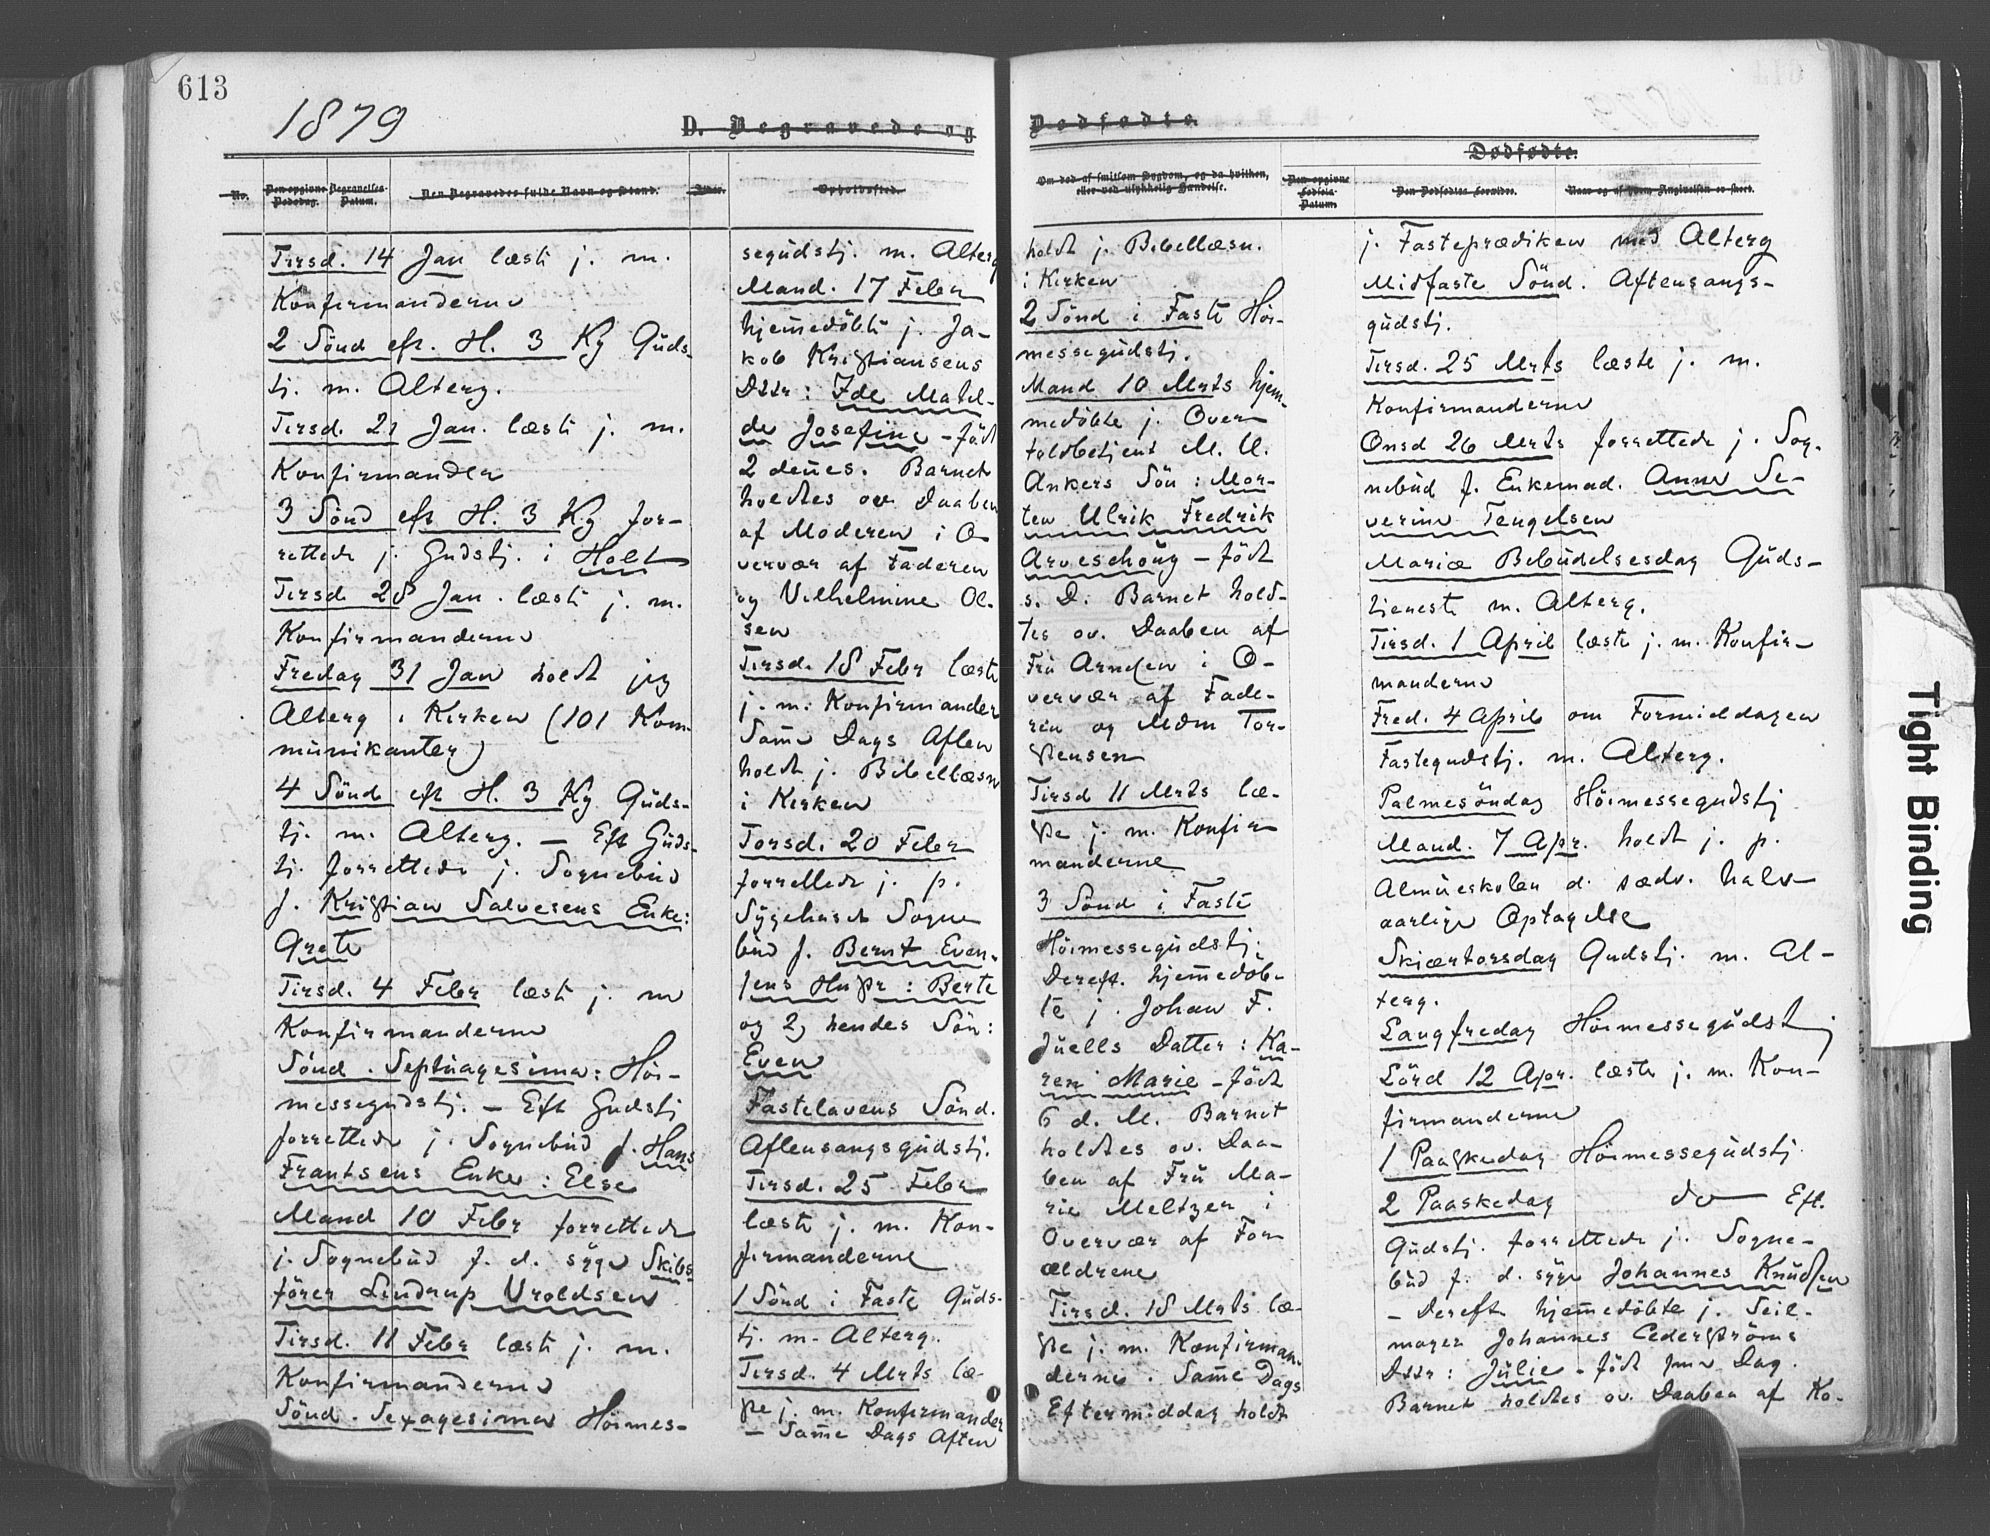 613
1879
D. Begravede og
No.
Den opgivne Dødsdag.
Begravelses-Datum.
Den Begravedes fulde Navn og Stand.
Alder.
Opholdssted.
Tirsd. 14 Jan læste j. m.
Konfirmanderne
2 Sönd eft. H. 3 Kg Guds-
tj. m. Alterg.
Tirsd. 21 Jan. læste j. m.
Konfirmander
3 Sönd eft H. 3 Kg for-
rettede j. Gudstj. i Holt
Tirsd 28 Jan. læste j. m.
Konfirmanderne
Fredag 31 Jan holdt jeg
Alterg i Kirken (101 Kom-
munikanter)
4 Sönd eft H. 3 Kg Guds-
tj. m. Alterg. — Eft Guds-
tj. forrettede j. Sognebud
f. Kristian Salvesens Enke:
Grete
Tirsd. 4 Febr læste j. m
Konfirmanderne
Sönd. Septuagesima: Höi-
messegudstj. — Eft Gudstj
forrettede j. Sognebud f. Hans
Frantsens Enke: Else
Mand 10 Febr forrettede
j. Sognebud f. d. syge Skibs
förer Lindrup Uroldsen
Tirsd. 11 Febr læste j. m.
Konfirmanderne
Sönd. Sexagesima Höimes-
segudstj. m. Alterg
Mand. 17 Febr
hjemedöbte j. Ja-
kob Kristiansens
Dttr: Ide Matil-
de Josefine – födt
2 denes. Barnet
holdtes ov. Daaben
af Moderen i O-
vervær af Faderen
og Vilhelmine Ol-
sen
Tirsd. 18 Febr læste
j. m. Konfirmander
Same Dags Aften
holdt j. Bibellæsn
i Kirken
Torsd. 20 Febr
forrettede j. p.
Sygehuset Sogne
bud f. Bernt Even-
sens Hustr: Berte
og 2) hendes Sön:
Even
Fastelavens Sönd.
Aftensangsgudstj.
Tirsd. 25 Febr
læste j. m. Kon-
firmanderne
1 Sönd i Faste Guds-
tj. m. Alterg.
Tirsd. 4 Mrts læ-
ste j. m. Konfirmander
— Same Dags Aften
Dødfødte.
Om død af smitsom Sygdom, og da hvilken,
eller ved ulykkelig Hændelse.
Dødfødte.
Den opgivne Fødsels-Datum.
Den Dødfødtes Forældre.
Naar og af hvem Angivelsen er skeet.
holdt j. Bibellæsn.
i Kirken
2 Sönd i Faste Höi-
messegudstj.
Mand 10 Mrts hjem-
medöbte j. Over
toldbetjent M. U.
Ankers Sön: Mor-
ten Ulrik Fredrik
Arveschoug – födt
s. D. Barnet hold-
tes ov. Daaben af
Fru Arntsen i O-
vervær af Fade-
ren og Mdm Tor-
stensen
Tirsd 11 Mrts læ-
ste j. m. Konfir
manderne
3 Sönd i Faste
Höimessegudstj.
Dereft. hjemedöb-
te j. Johan F.
Juells Datter: Ka-
ren Marie – födt
6 d. M. Barnet
holdtes ov. Daa-
ben af Fru Ma-
rie Meltzer i
Overvær af For
ældrene
Tirsd. 18 Mrts læ-
ste j. m. Konfirman-
derne. Same Dags
Eftermiddag holdt
j. Fasteprædiken med Alterg
Midfaste Sönd. Aftensangs-
gudstj.
Tirsd. 25 Mrts læste j. m.
Konfirmanderne
Onsd 26 Mrts forrettede j. Sog-
nebud f. Enkemad. Anne Se-
verine Tengelsen
Mariæ Bebudelsesdag Guds-
tjeneste m. Alterg.
Tirsd. 1 April læste j. m. Konfir-
manderne
Fred. 4 April om Formiddagen
Fastegudstj. m. Alterg.
Palmesöndag Höimessegudstj
Mand. 7 Apr. holdt j. p.
Almueskolen d. sædv. halv
aarlige Optagelse
Skjærtorsdag Gudstj. m. Al-
terg.
Langfredag Höimessegudstj
Lörd 12 Apr. læste j. m. Kon-
firmanderne
1 Paaskedag Höimessegudstj
2 Paaskedag do Eft.
Gudstj. forrettede j. Sogne-
bud f. d. syge Johannes Knudsen
– Dereft hjemedöbte j. Seil-
mager Johannes Cederströms
Dttr: Julie – födt sme Dag.
Barnet holdtes ov. Daaben af Ko-
Tight Binding